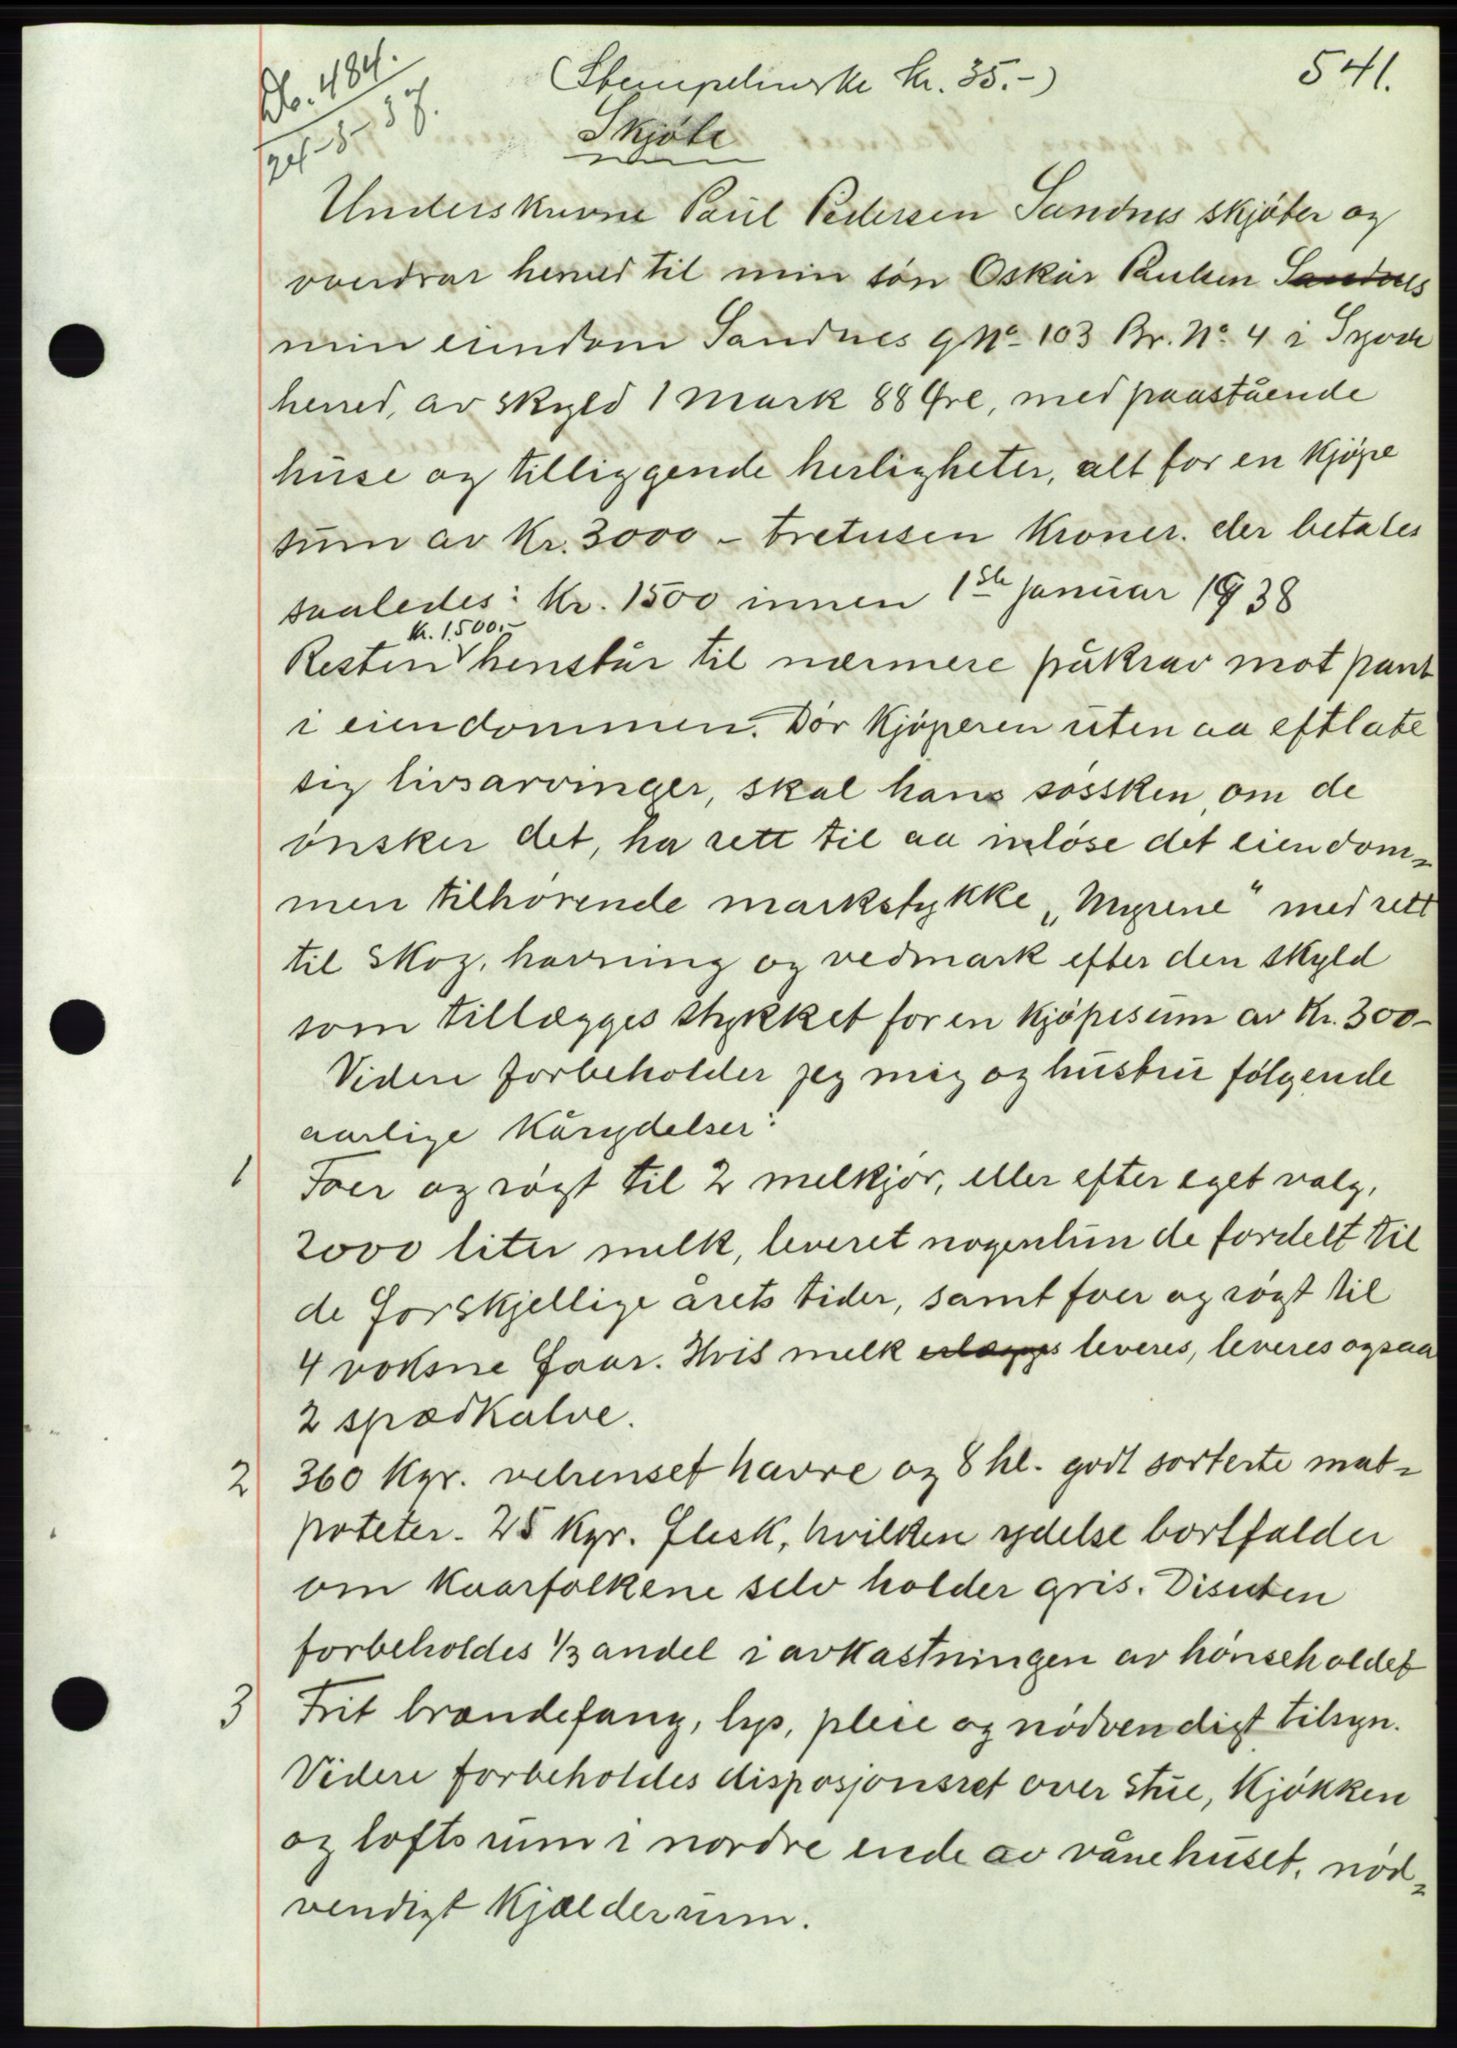 Db. 484.
24-3-37.
(Stempelmerke kr. 35.-)
541.
Skjøte
Underskrevne Paul Pedersen Sandnes skjøter og
overdrar herved til min søn Oskar Paulsen Sandnes
min eiendom Sandnes gNo. 103 Br. No. 4 i Syvde
herred, av skyld 1 mark 88 Øre, med paastående
huse og tilliggende herligheter, alt for en kjøpe
sum av Kr. 3000 - tretusen Kroner. der betales
saaledes: Kr. 1500 innen 1ste januar 1938
Kr. 1.500.-
Resten henstår til nærmere påkrav mot pant
i eiendommen. Dør kjøperen uten aa eftlate
sig livsarvinger, skal hans søssken, om de
ønsker det, ha rett til aa inløse det eiendom=
men tilhørende markstykke "Myrene" med rett
til skog, havning og vedmark efter den skyld
som tillægges stykket for en kjøpesum av Kr. 300-
Videre forbeholder jeg mig og hustru følgende
aarlige kårydelser:
1 Foer og røgt til 2 melkjør, eller efter eget valg,
2000 liter melk, leveret nogenlunde fordelt til
de forskjellige årets tider, samt foer og røgt til
4 voksne faar. Hvis melk erlægges leveres, leveres ogsaa
2 spædkalve.
2 360 Kgr. velrenset havre og 8 hl. godt sorterte mat=
poteter. 25 Kgr. flesk, hvilken ydelse bortfalder
om kaarfolkene selv holder gris. Disuten
forbeholdes 1/3 andel i avkastningen av hønseholdet
3 Frit brændefang, lys, pleie og nødvendigt tilsyn.
Videre forbeholdes disposjonsret over stue, kjøkken
og loftsrum i nordre ende av vånehuset, nød=
vendigt kjælderrum.